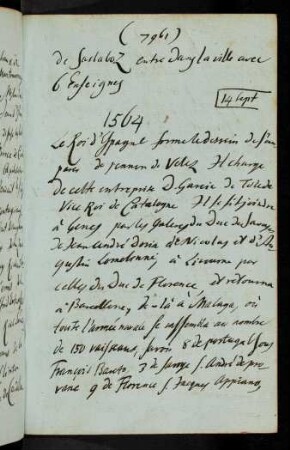 (7961)
de Sarlaboz entre dans la ville avec
6 Enseignes
14 Sept
1564
Le Roi d'Espagne forme le dessein de s'em
parer de pennon de Velez Il charge
de cette entreprise D. Garcie de Tolede
Vice Roi de Catalogne Il se fit joindre
à Genes par les Galeres du Duc de Savoye
de Jean André Doria de Nicolas et d'Au
gustin Lomelonni, à Livourne par
celles du Duc de Florence, et retourna
à Barcellone, de là à Malaga, où
toute l'armée navale se rassembla au nombre
de 150 vaisseaux, savoir 8 de portugal sous
François Baretto, 3 de savoye s. André de pro
vane 9 de Florence s. Jacques Appiano,